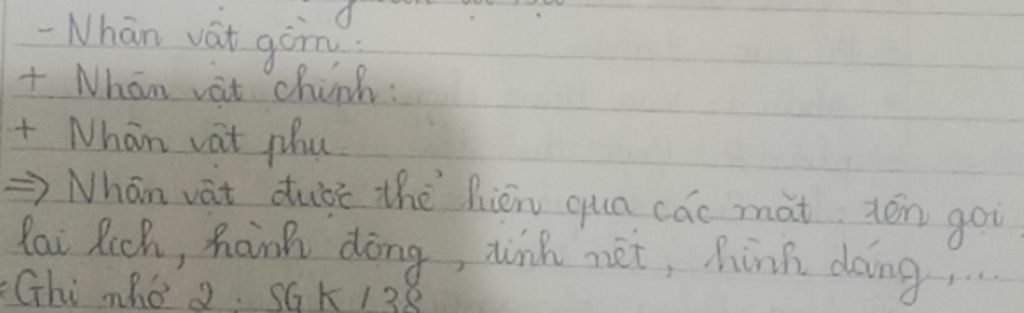 - Nhân vật gồm:
+ Nhân vật chính:
+ Nhân vật phụ.
=> Nhân vật được thể hiện qua các mặt: tên gọi,
lai lịch, hành động, tính nết, hình dáng,...
Ghi nhớ 2: SGK/38